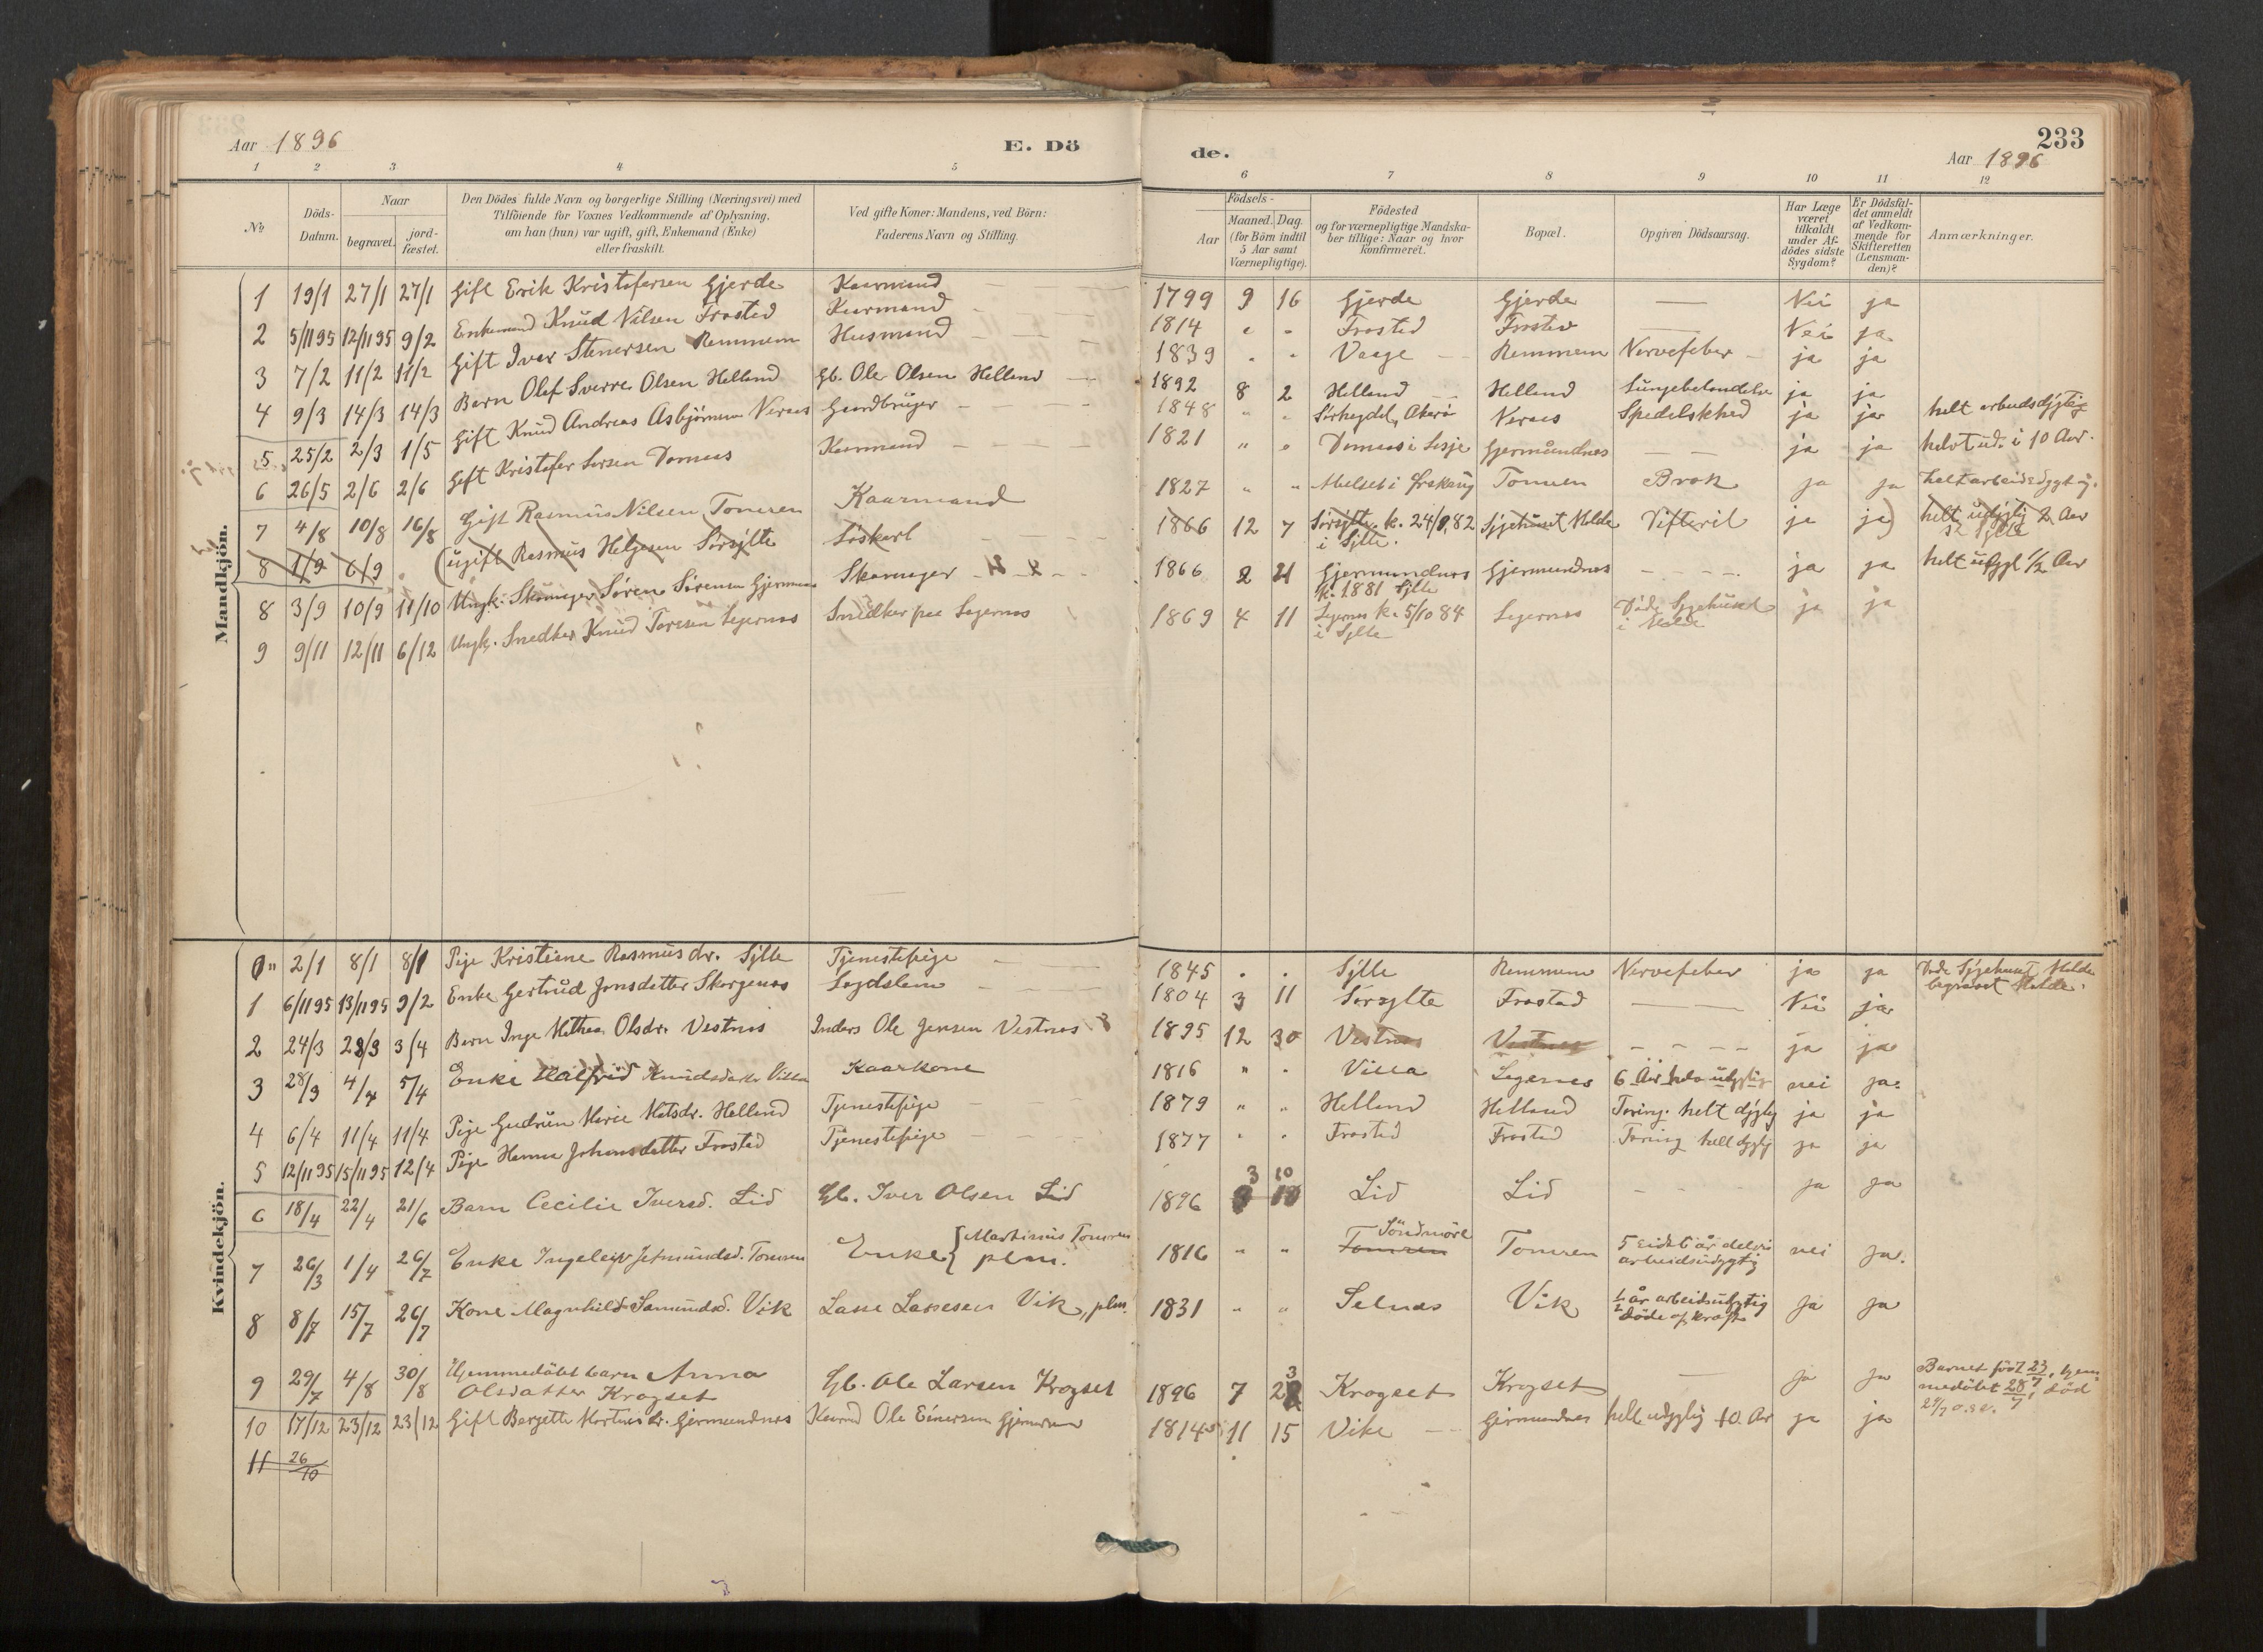 Aar 1896
E. Dö
de.
233
Aar 1896
1 2 3 4 5 6 7 8 9 10 11 12
№
Döds-
Datum.
Naar
begravet.
jord-
fæstet.
Den Dödes fulde Navn og borgerlige Stilling (Næringsvei) med
Tilföiende for Voxnes Vedkommende af Oplysning,
om han (hun) var ugift, gift, Enkemand (Enke)
eller fraskilt.
Ved gifte Koner: Mandens, ved Börn:
Faderens Navn og Stilling.
Födsels-
Aar
Maaned. Dag.
(for Börn indtil
5 Aar samt
Værnepligtige).
Födested
og for værnepligtige Mandska-
ber tillige: Naar og hvor
konfirmeret.
Bopæl.
Opgiven Dödsaarsag.
Har Læge
været
tilkaldt
under Af-
dödes sidste
Sygdom?
Er Dödsfal-
det anmeldt
af Vedkom-
mende for
Skifteretten
(Lensman-
den)?
Anmærkninger.
Mandkjön.
1 19/1 27/1 27/1 Gift Erik Kristofersen Gjerde Kaarmand 1799 9 16 Gjerde Gjerde — Nei ja
2 5/11 95 12/11 95 9/2 Enkemand Knud Nilsen Frosted Kaarmand 1814 " " Frosted Frosted — Nei ja
3 7/2 11/2 11/2 Gift Iver Stenersen Remmem Husmand 1839 " " Vaage Remmem Nervefeber ja ja
4 9/3 14/3 14/3 Barn Olef Sverre Olsen Helland Gb. Ole Olsen Helland 1892 8 2 Helland Helland Lungebetændelse ja ja
5 25/2 2/3 1/5 Gift Knud Andreas Asbjörnsen Neraas Gaardbruger 1848 " " Akerö Neraas Spedalskhed ja ja helt arbeidsdygtig
6 26/5 2/6 2/6 Gift Kristofer Larsen Domaas Kaarmand 1821 " " Domaas i Lesje Gjermundnes — — ja ja helt ud. i 10 Aar.
7 4/8 10/8 16/8 Gift Rasmus Nilsen Tomren Kaarmand 1827 " " i Tomren Brok ja ja helt arbeidsdygtig.
8 1/9 6/9 (ugift Rasmus Helgesen Sörsylte Löskarl 1866 12 7 Sörsylte k. 24/9 82 Sygehuset Molde ja ja) helt udygtig 2 Aar
i Sylte. Sylte
8 3/9 10/9 11/10 Ungk. Skomager Sören Sörensen Gjermundnes Skomager 1866 2 21 Gjermundnes Gjermundnes — ja ja helt udygt 1/2 Aar
k. 1881 Sylte
9 9/11 12/11 6/12 Ungk. Snedker Knud Toresen Legernes Snedker paa Legernes 1869 4 11 Legernes k. 5/10 84 Legernes Döde Sygehuset ja ja
i Sylte i Molde
Kvindekjön.
0" 2/1 8/1 8/1 Pige Kristiane Rasmusdr. Sylte Tjenestepige 1845 " " Sylte Remmem Nervefeber ja ja Döde Sygehuset Molde
begravet Molde.
1 6/11 95 13/11 95 9/2 Enke Gertrud Jonsdatter Skorgenes Lægdslem 1804 3 11 Sörsylte Frostad — Nei ja
2 24/3 28/3 3/4 Barn Inge Mathea Olsdr. Vestnes Inders Ole Jensen Vestnes 1895 12 30 Vestnes Vestnes — ja ja
3 28/3 4/4 5/4 Enke Halfrid Knudsdatter Villa Kaarkone 1816 " " Villa Legernes 6 Aar helt udygtig nei ja.
4 6/4 11/4 11/4 Pige Gudrun Marie Matsdr. Helland Tjenestepige 1879 " " Helland Helland Tæring. helt dygtig ja ja
5 12/11 95 15/11 95 12/4 Pige Hanna Johansdatter Frostad Tjenestepige 1877 " " Frostad Frostad Tæring helt dygtig ja ja
6 18/4 22/4 21/6 Barn Cecilie Iversd. Lid Gb. Iver Olsen Lid 1896 3 10 Lid Lid — ja ja
7 26/3 1/4 26/7 Enke Ingeleiv Jetmundsd. Tomren Enke { Martinus Tomren 1816 " " Söndmöre Tomren 5 sidste år delvis nei ja.
plm. Tomren arbeidsudygtig
8 8/7 15/7 26/7 Kone Magnhild Samundsd. Vik Lasse Lassesen Vik, plm. 1831 " " Selnæs Vik 1/2 år arbeidsudygtig ja ja
döde af kræft
9 29/7 4/8 30/8 Hjemmedöbt barn Anna Gb. Ole Larsen Krogset 1896 7 23 Krogset Krogset — ja ja Barnet födt 23/7, hjem-
Olsdatter Krogset medöbt 28/7, död
29/7 o.s.v.
10 17/12 23/12 23/12 Gift Bergette Martinusdr. Gjermundnes Kaarmd Ole Einersen Gjermundnes 1814 11 15 Vike Gjermundnes helt udygtig 10 Aar ja ja
11 26/10